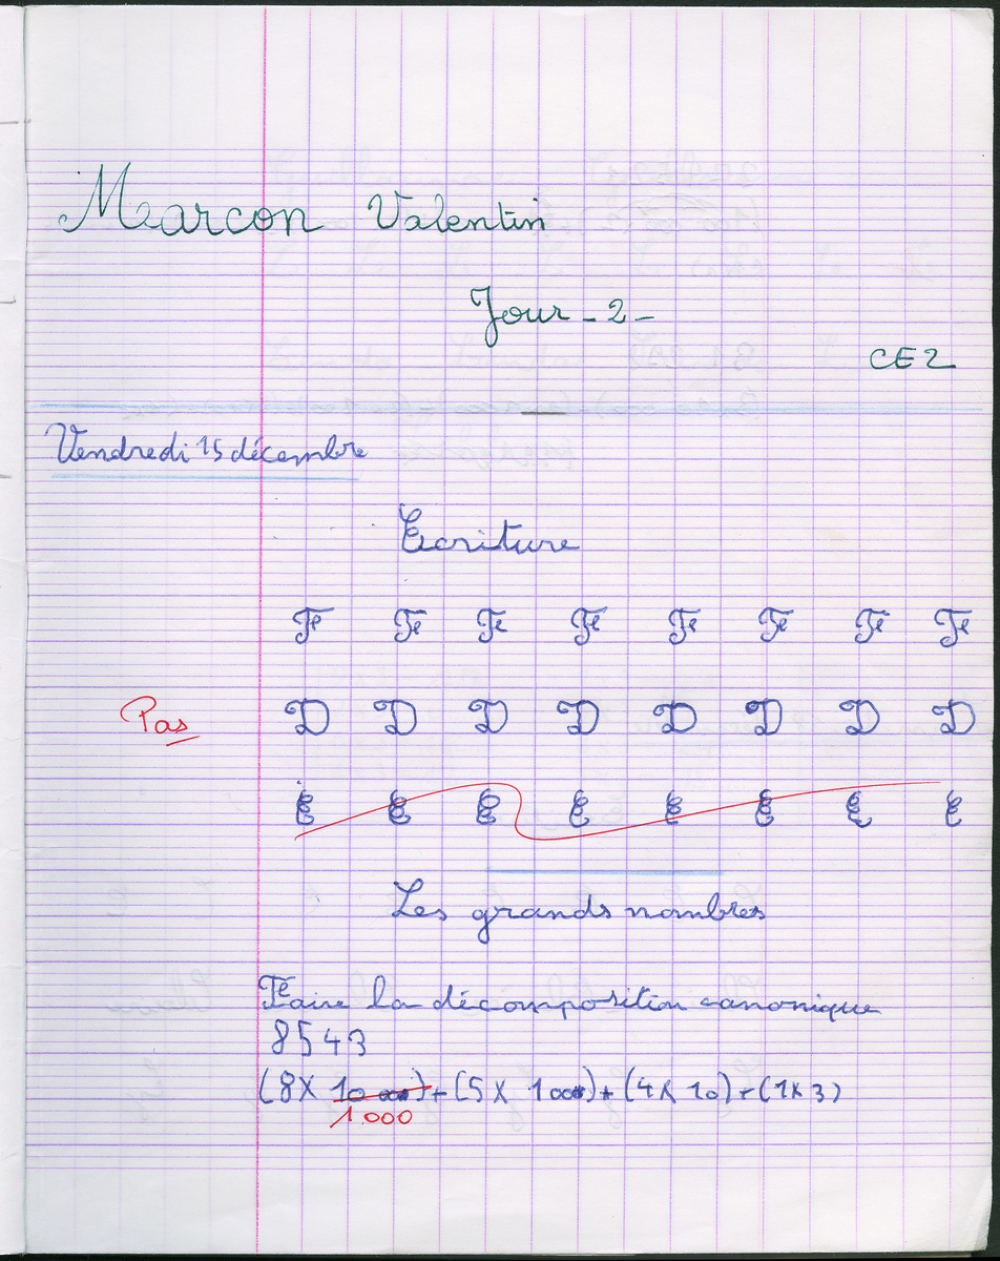 Marcon Valentin
Jour - 2 -
CE2
Vendredi 15 décembre
Ecriture
F F F F F F F F
Pas D D D D D D D D
E E E E E E E E
Les grands nombres
Faire la décomposition canonique
8543
(8 X 10 000) + (5 X 100) + (4 X 10) + (1 X 3)
1.000